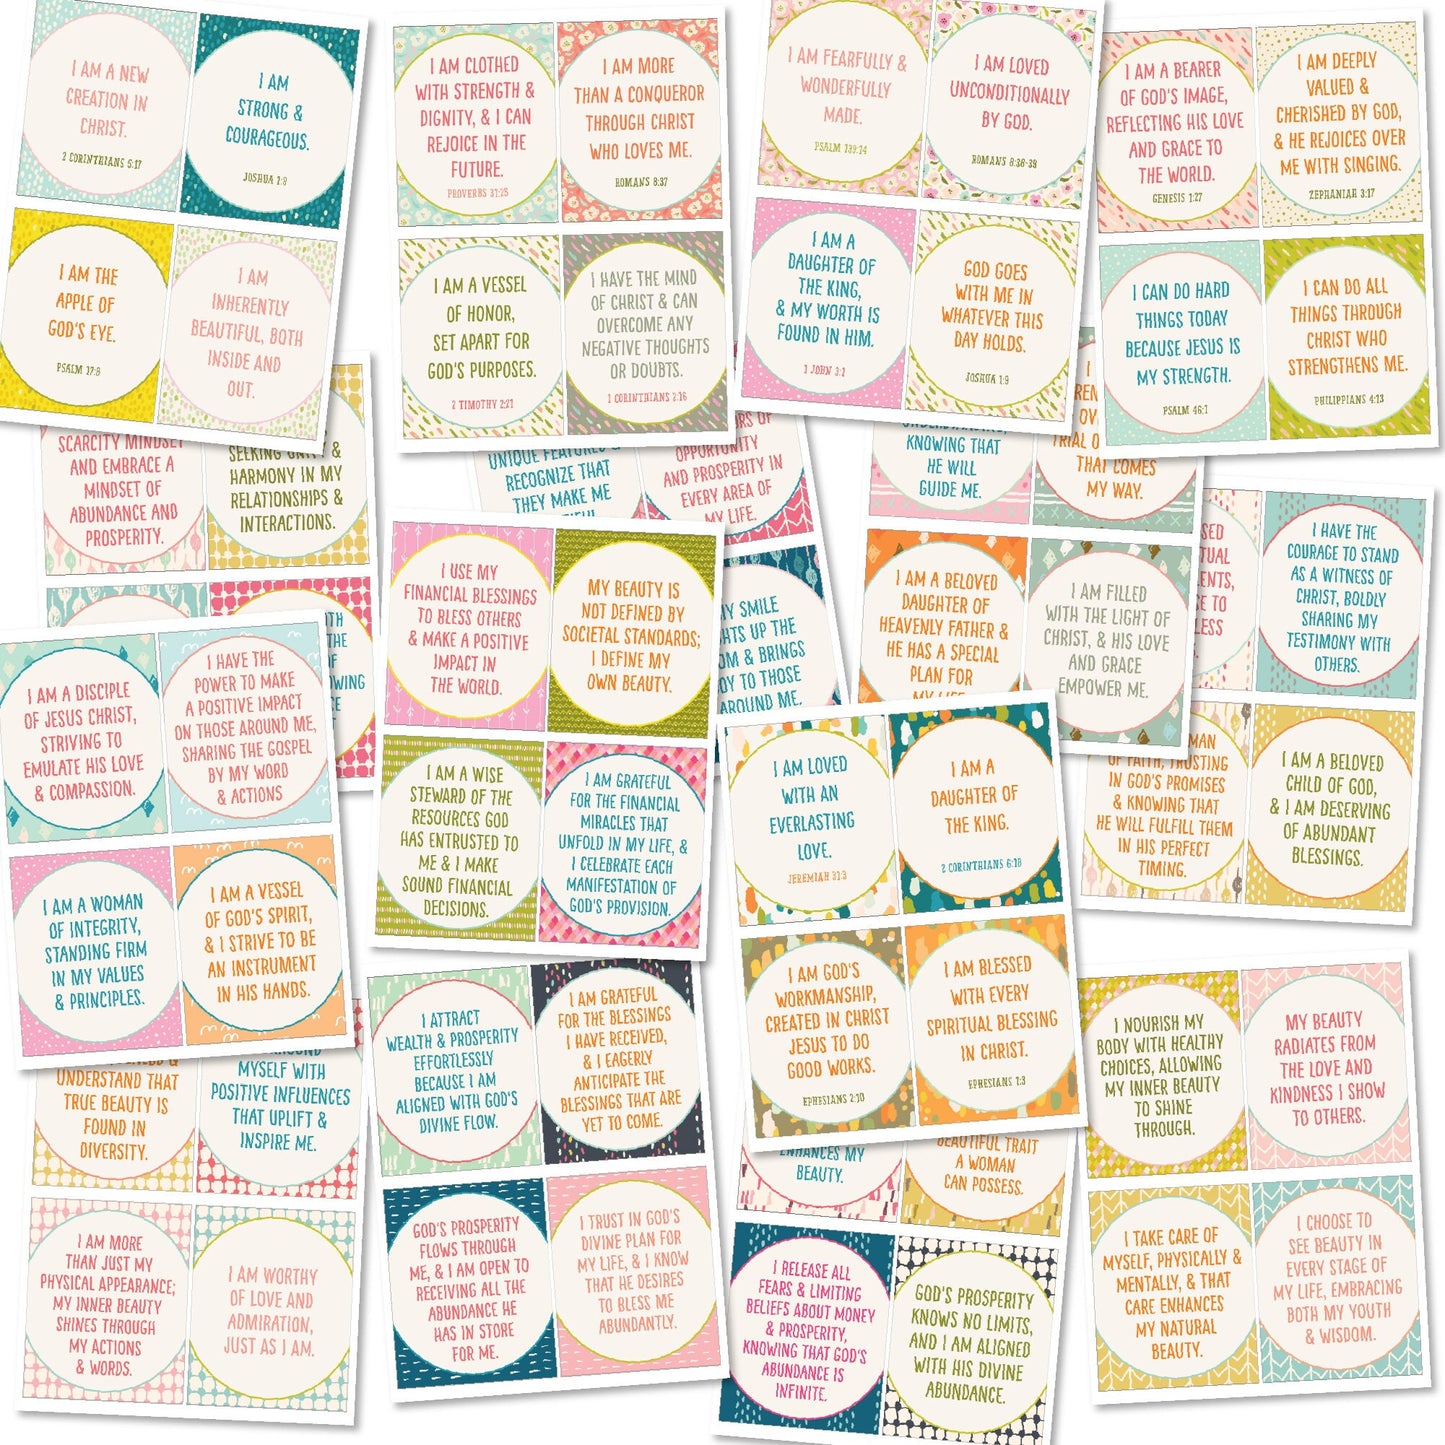 I AM A NEW
CREATION IN
CHRIST.
2 CORINTHIANS 5:17
I AM
STRONG &
COURAGEOUS.
JOSHUA 1:9
I AM THE
APPLE OF
GOD'S EYE.
PSALM 17:8
I AM
INHERENTLY
BEAUTIFUL, BOTH
INSIDE AND
OUT.
I AM CLOTHED
WITH STRENGTH &
DIGNITY, & I CAN
REJOICE IN THE
FUTURE.
PROVERBS 31:25
I AM MORE
THAN A CONQUEROR
THROUGH CHRIST
WHO LOVES ME.
ROMANS 8:37
I AM A VESSEL
OF HONOR,
SET APART FOR
GOD'S PURPOSES.
2 TIMOTHY 2:21
I HAVE THE MIND
OF CHRIST & CAN
OVERCOME ANY
NEGATIVE THOUGHTS
OR DOUBTS.
1 CORINTHIANS 2:16
I AM FEARFULLY &
WONDERFULLY
MADE.
PSALM 139:14
I AM LOVED
UNCONDITIONALLY
BY GOD.
ROMANS 8:38-39
I AM A
DAUGHTER OF
THE KING,
& MY WORTH IS
FOUND IN HIM.
1 JOHN 3:1
GOD GOES
WITH ME IN
WHATEVER THIS
DAY HOLDS.
JOSHUA 1:9
I AM A BEARER
OF GOD'S IMAGE,
REFLECTING HIS LOVE
AND GRACE TO
THE WORLD.
GENESIS 1:27
I AM DEEPLY
VALUED &
CHERISHED BY GOD,
& HE REJOICES OVER
ME WITH SINGING.
ZEPHANIAH 3:17
I CAN DO HARD
THINGS TODAY
BECAUSE JESUS IS
MY STRENGTH.
PSALM 46:1
I CAN DO ALL
THINGS THROUGH
CHRIST WHO
STRENGTHENS ME.
PHILIPPIANS 4:13
SCARCITY MINDSET
AND EMBRACE A
MINDSET OF
ABUNDANCE AND
PROSPERITY.
SEEKING UNITY &
HARMONY IN MY
RELATIONSHIPS &
INTERACTIONS.
UNIQUE FEATURES &
RECOGNIZE THAT
THEY MAKE ME
OPPORTUNITY
AND PROSPERITY IN
EVERY AREA OF
MY LIFE.
MY SMILE
UP THE
& BRINGS
TO THOSE
AROUND ME.
KNOWING THAT
HE WILL
GUIDE ME.
THAT COMES
MY WAY.
I AM A BELOVED
DAUGHTER OF
HEAVENLY FATHER &
HE HAS A SPECIAL
PLAN FOR
MY LIFE
I AM FILLED
WITH THE LIGHT OF
CHRIST, & HIS LOVE
AND GRACE
EMPOWER ME.
I HAVE THE
COURAGE TO STAND
AS A WITNESS OF
CHRIST, BOLDLY
SHARING MY
TESTIMONY WITH
OTHERS.
OF FAITH, TRUSTING
IN GOD'S PROMISES
& KNOWING THAT
HE WILL FULFILL THEM
IN HIS PERFECT
TIMING.
I AM A BELOVED
CHILD OF GOD,
& I AM DESERVING
OF ABUNDANT
BLESSINGS.
I AM A DISCIPLE
OF JESUS CHRIST,
STRIVING TO
EMULATE HIS LOVE
& COMPASSION.
I HAVE THE
POWER TO MAKE
A POSITIVE IMPACT
ON THOSE AROUND ME,
SHARING THE GOSPEL
BY MY WORD
& ACTIONS
I AM A WOMAN
OF INTEGRITY,
STANDING FIRM
IN MY VALUES
& PRINCIPLES.
I AM A VESSEL
OF GOD'S SPIRIT,
& I STRIVE TO BE
AN INSTRUMENT
IN HIS HANDS.
I USE MY
FINANCIAL BLESSINGS
TO BLESS OTHERS
& MAKE A POSITIVE
IMPACT IN
THE WORLD.
MY BEAUTY IS
NOT DEFINED BY
SOCIETAL STANDARDS;
I DEFINE MY
OWN BEAUTY.
I AM A WISE
STEWARD OF THE
RESOURCES GOD
HAS ENTRUSTED TO
ME & I MAKE
SOUND FINANCIAL
DECISIONS.
I AM GRATEFUL
FOR THE FINANCIAL
MIRACLES THAT
UNFOLD IN MY LIFE, &
I CELEBRATE EACH
MANIFESTATION OF
GOD'S PROVISION.
I AM LOVED
WITH AN
EVERLASTING
LOVE.
JEREMIAH 31:3
I AM A
DAUGHTER OF
THE KING.
2 CORINTHIANS 6:18
I AM GOD'S
WORKMANSHIP,
CREATED IN CHRIST
JESUS TO DO
GOOD WORKS.
EPHESIANS 2:10
I AM BLESSED
WITH EVERY
SPIRITUAL BLESSING
IN CHRIST.
EPHESIANS 1:3
UNDERSTAND THAT
TRUE BEAUTY IS
FOUND IN
DIVERSITY.
MYSELF WITH
POSITIVE INFLUENCES
THAT UPLIFT &
INSPIRE ME.
I AM MORE
THAN JUST MY
PHYSICAL APPEARANCE;
MY INNER BEAUTY
SHINES THROUGH
MY ACTIONS
& WORDS.
I AM WORTHY
OF LOVE AND
ADMIRATION,
JUST AS I AM.
I ATTRACT
WEALTH & PROSPERITY
EFFORTLESSLY
BECAUSE I AM
ALIGNED WITH GOD'S
DIVINE FLOW.
I AM GRATEFUL
FOR THE BLESSINGS
I HAVE RECEIVED,
& I EAGERLY
ANTICIPATE THE
BLESSINGS THAT ARE
YET TO COME.
GOD'S PROSPERITY
FLOWS THROUGH
ME, & I AM OPEN TO
RECEIVING ALL THE
ABUNDANCE HE
HAS IN STORE
FOR ME.
I TRUST IN GOD'S
DIVINE PLAN FOR
MY LIFE, & I KNOW
THAT HE DESIRES
TO BLESS ME
ABUNDANTLY.
ENHANCES MY
BEAUTY.
BEAUTIFUL TRAIT
A WOMAN
CAN POSSESS.
I RELEASE ALL
FEARS & LIMITING
BELIEFS ABOUT MONEY
& PROSPERITY,
KNOWING THAT GOD'S
ABUNDANCE IS
INFINITE.
GOD'S PROSPERITY
KNOWS NO LIMITS,
AND I AM ALIGNED
WITH HIS DIVINE
ABUNDANCE.
I NOURISH MY
BODY WITH HEALTHY
CHOICES, ALLOWING
MY INNER BEAUTY
TO SHINE
THROUGH.
MY BEAUTY
RADIATES FROM
THE LOVE AND
KINDNESS I SHOW
TO OTHERS.
I TAKE CARE OF
MYSELF, PHYSICALLY &
MENTALLY, & THAT
CARE ENHANCES
MY NATURAL
BEAUTY.
I CHOOSE TO
SEE BEAUTY IN
EVERY STAGE OF
MY LIFE, EMBRACING
BOTH MY YOUTH
& WISDOM.